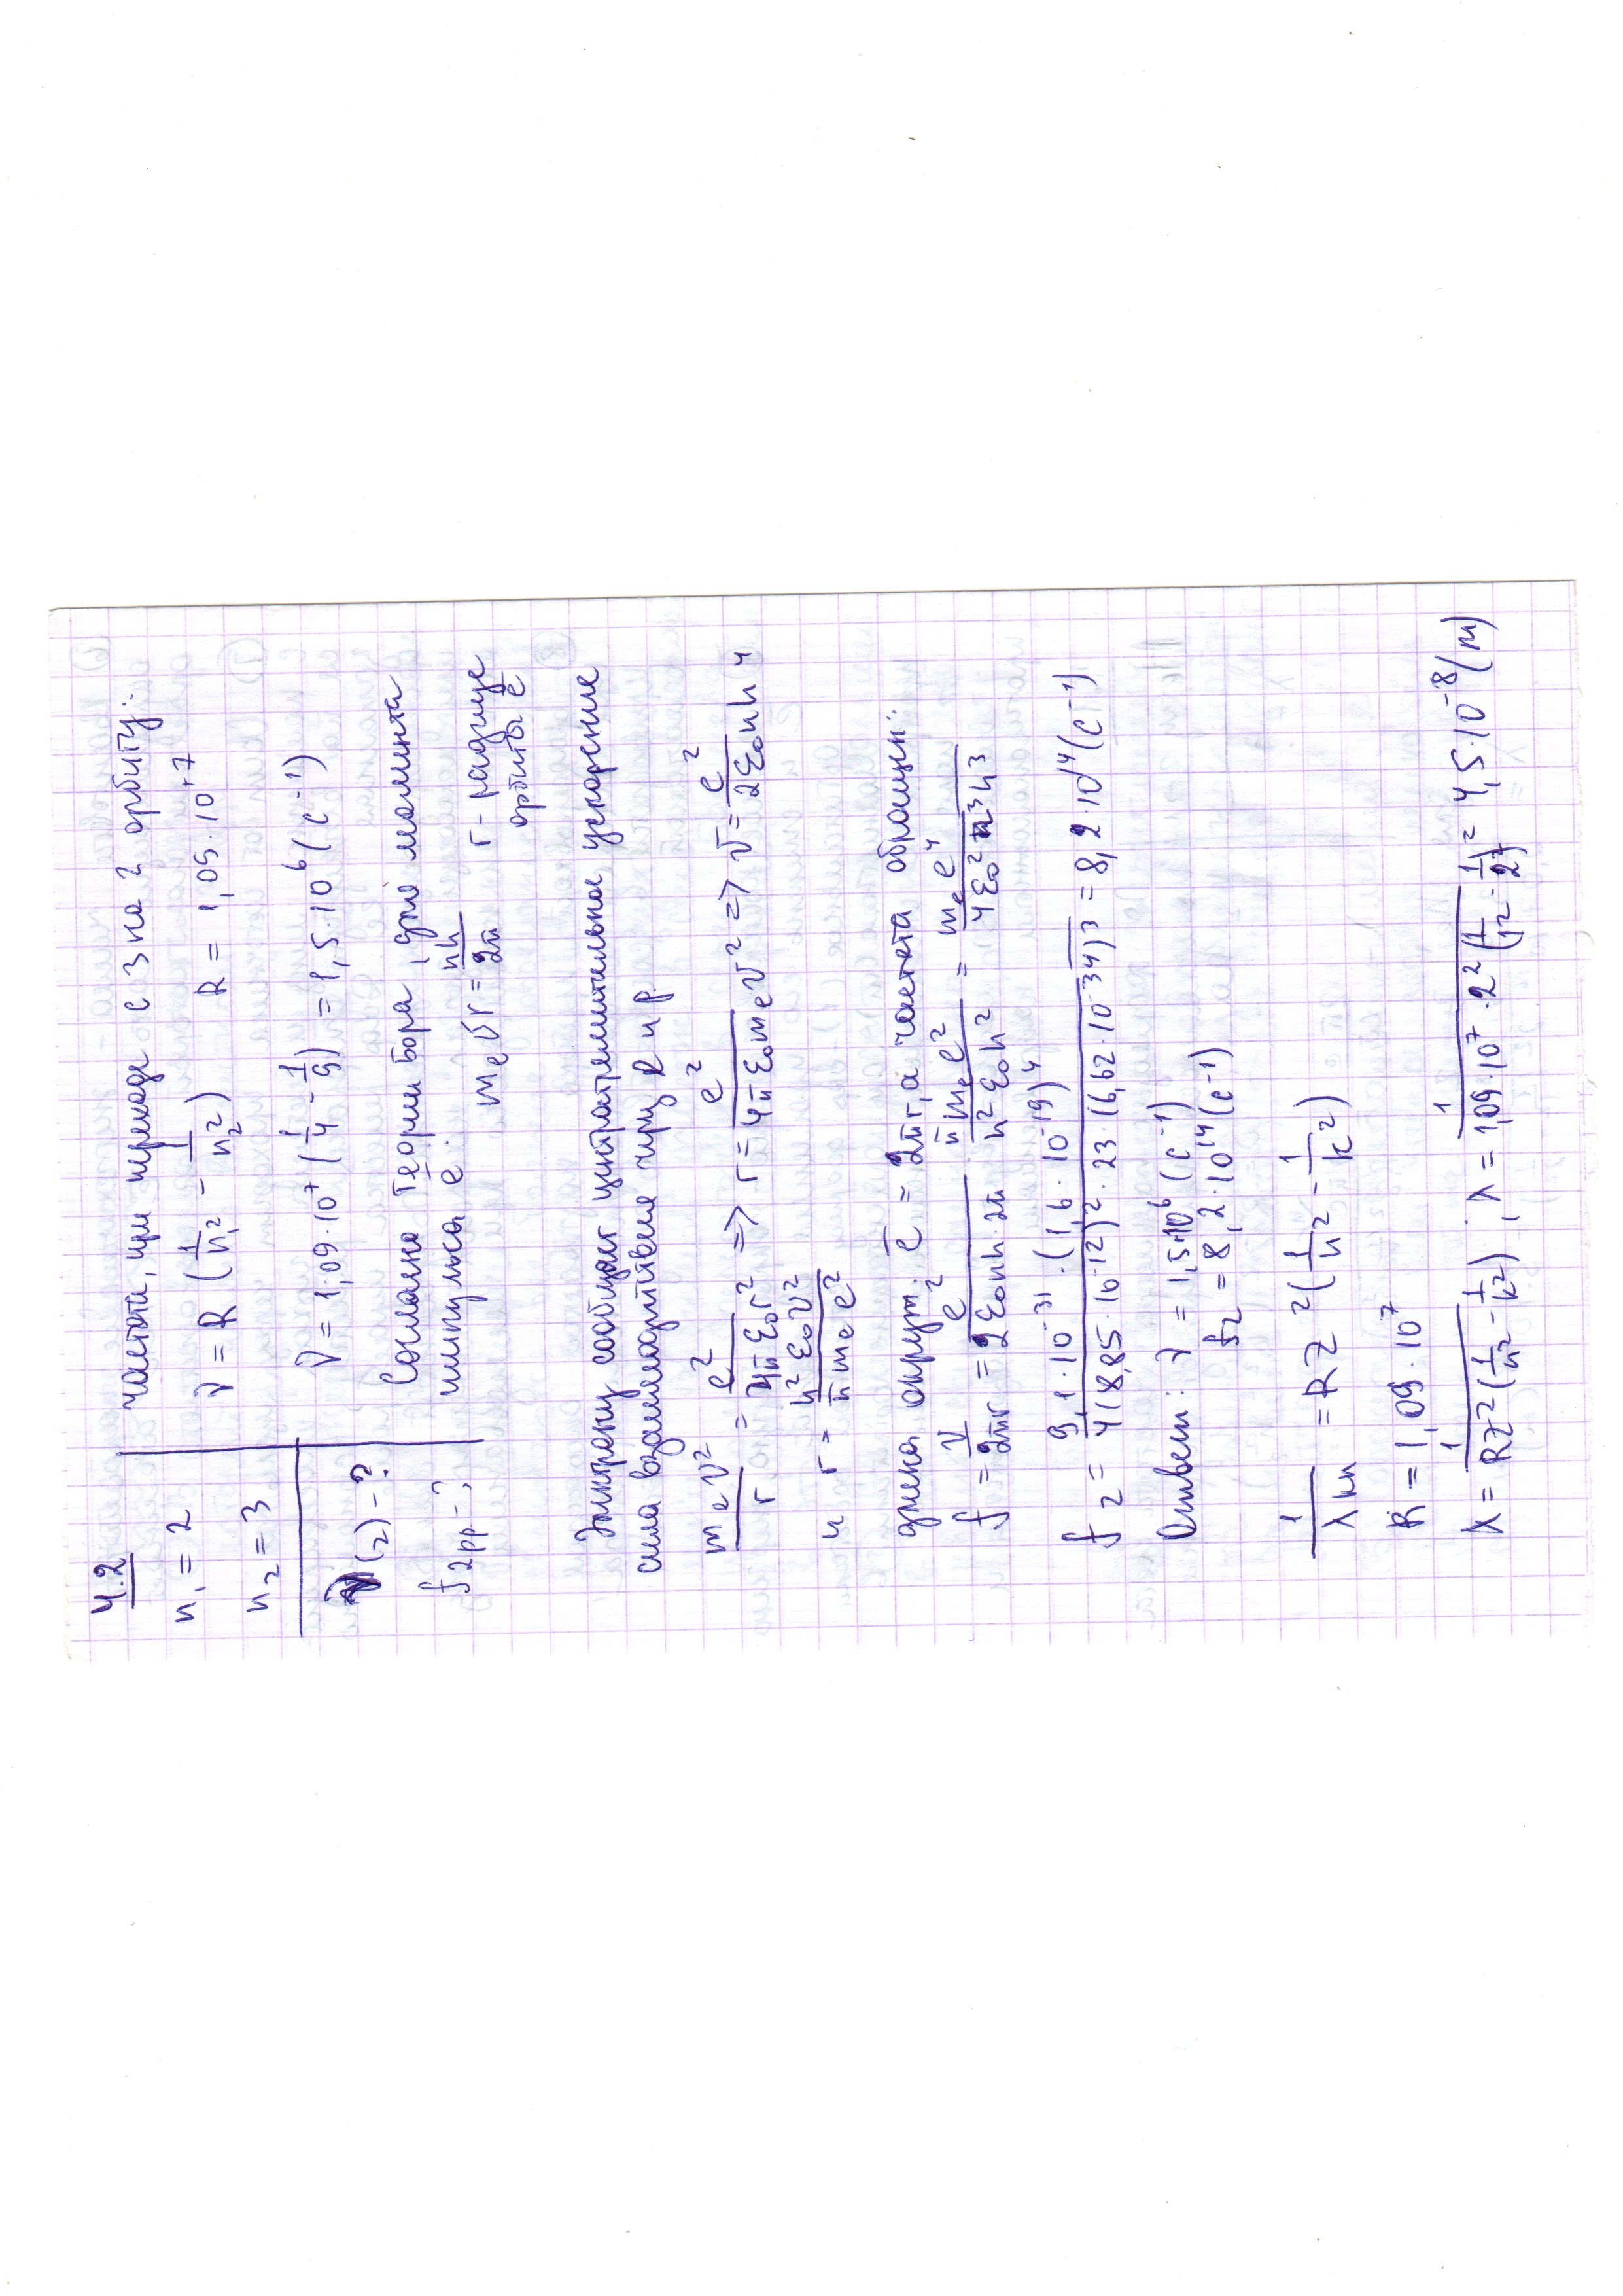 4.2
n₁ = 2
n₂ = 3
ν(2) - ?
f2рр - ?
частота, при переходе с 3 на 2 орбиту:
ν = R (1/n₁² - 1/n₂²)    R = 1,09·10⁺⁷
ν = 1,09·10⁷ (1/4 - 1/9) = 1,5·10⁶ (с⁻¹)
Согласно теории Бора, для момента
импульса ē:
mₑ v r = nh/2π    r - радиус
орбиты ē
Электрону сообщает центростремительное ускорение
сила взаимодействия через e и p.
mₑv²/r = e²/4πε₀r² => r = e²/4πε₀mₑv² => v = e²/2ε₀nh и
и r = h²ε₀v²/πmₑe²
длина окруж. ē = 2πr, а частота обращен:
f = v/2πr = e²/2ε₀nh·2π · πmₑe²/n²ε₀h² = mₑe⁴/4ε₀²n³h³
f₂ = 9,1·10⁻³¹·(1,6·10⁻¹⁹)⁴/4(8,85·10⁻¹²)²·23·(6,62·10⁻³⁴)³ = 8,2·10¹⁴ (с⁻¹)
Ответ: ν = 1,5·10⁶ (с⁻¹)
f₂ = 8,2·10¹⁴ (с⁻¹)
1/λkn = RZ² (1/n² - 1/k²)
R = 1,09·10⁷
λ = 1/RZ²(1/n² - 1/k²) ; λ = 1/1,09·10⁷·2²(1/1² - 1/2²) = 4,5·10⁻⁸ (м)